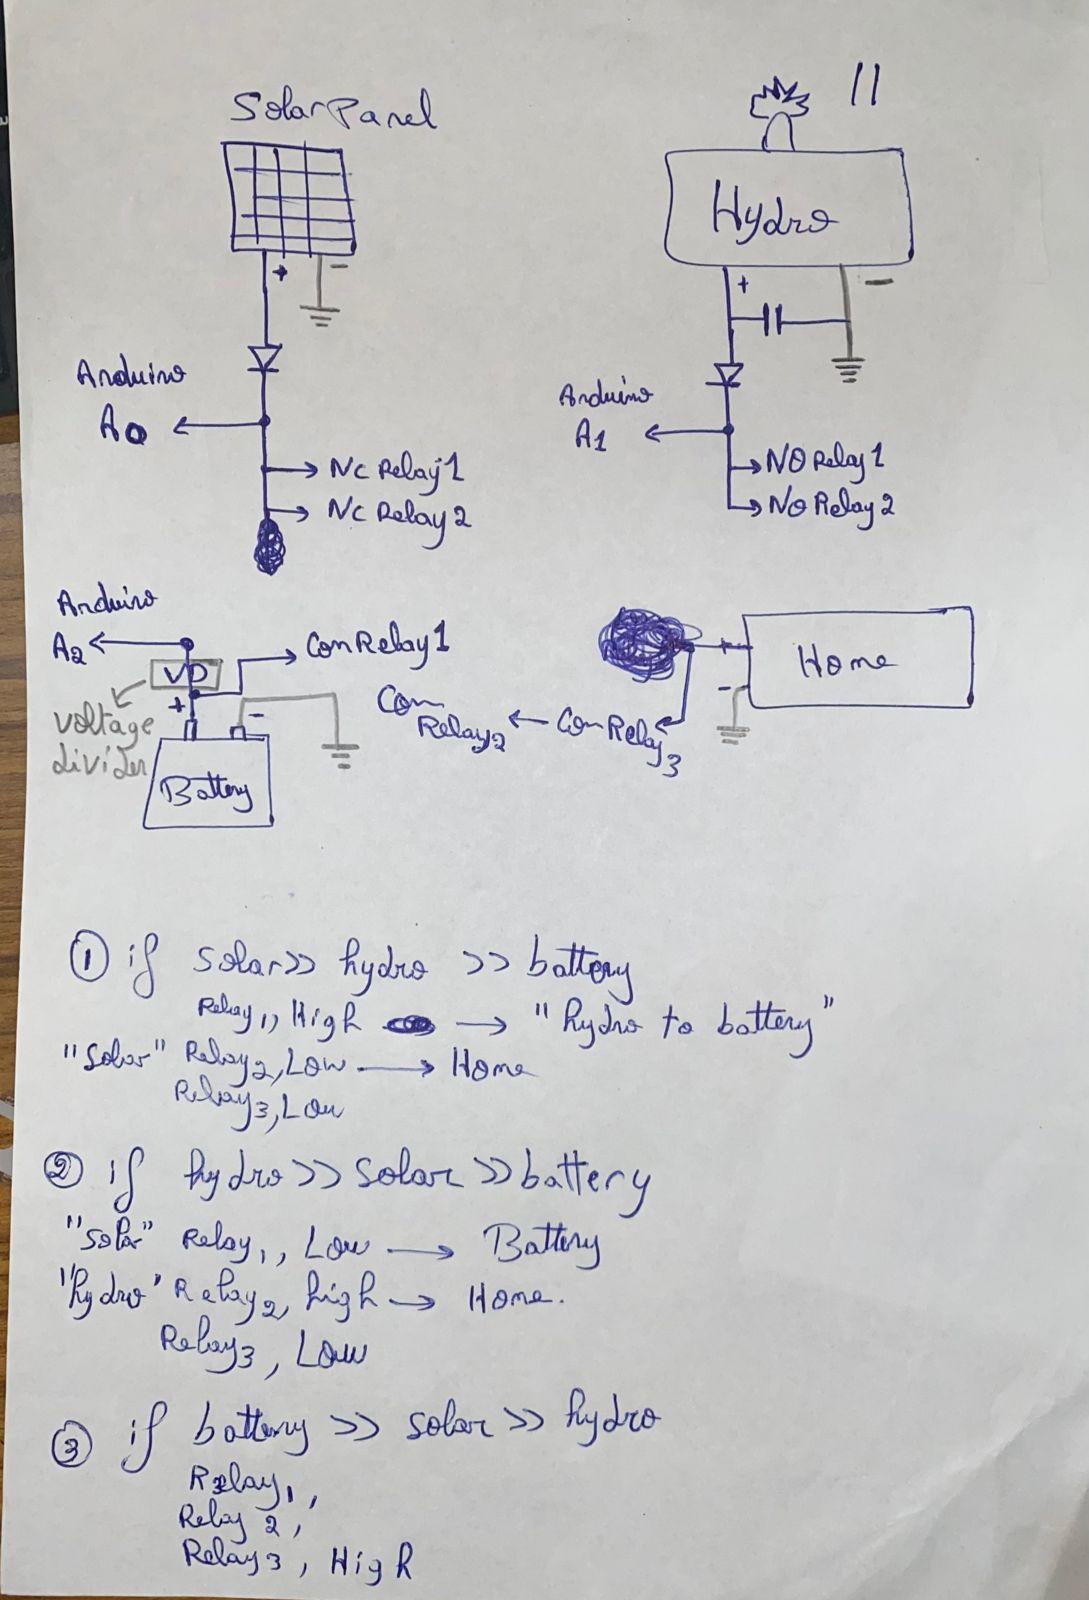 Solar Panel
Hydro
+
-
+
-
Arduino
A0
NC Relay 1
NC Relay 2
Arduino
A1
NO Relay 1
NO Relay 2
Arduino
A2
VD
voltage
divider
+
-
Com Relay 1
Battery
Home
+
-
Com Relay3
Com
Relay2
① if solar >> hydro >> battery
Relay1, High → "hydro to battery"
"Solar" Relay2, Low → Home
Relay3, Low
② if hydro >> solar >> battery
"solar" Relay1, Low → Battery
"hydro" Relay2, high → Home.
Relay3, Low
③ if battery >> solar >> hydro
Relay1,
Relay2,
Relay3, High